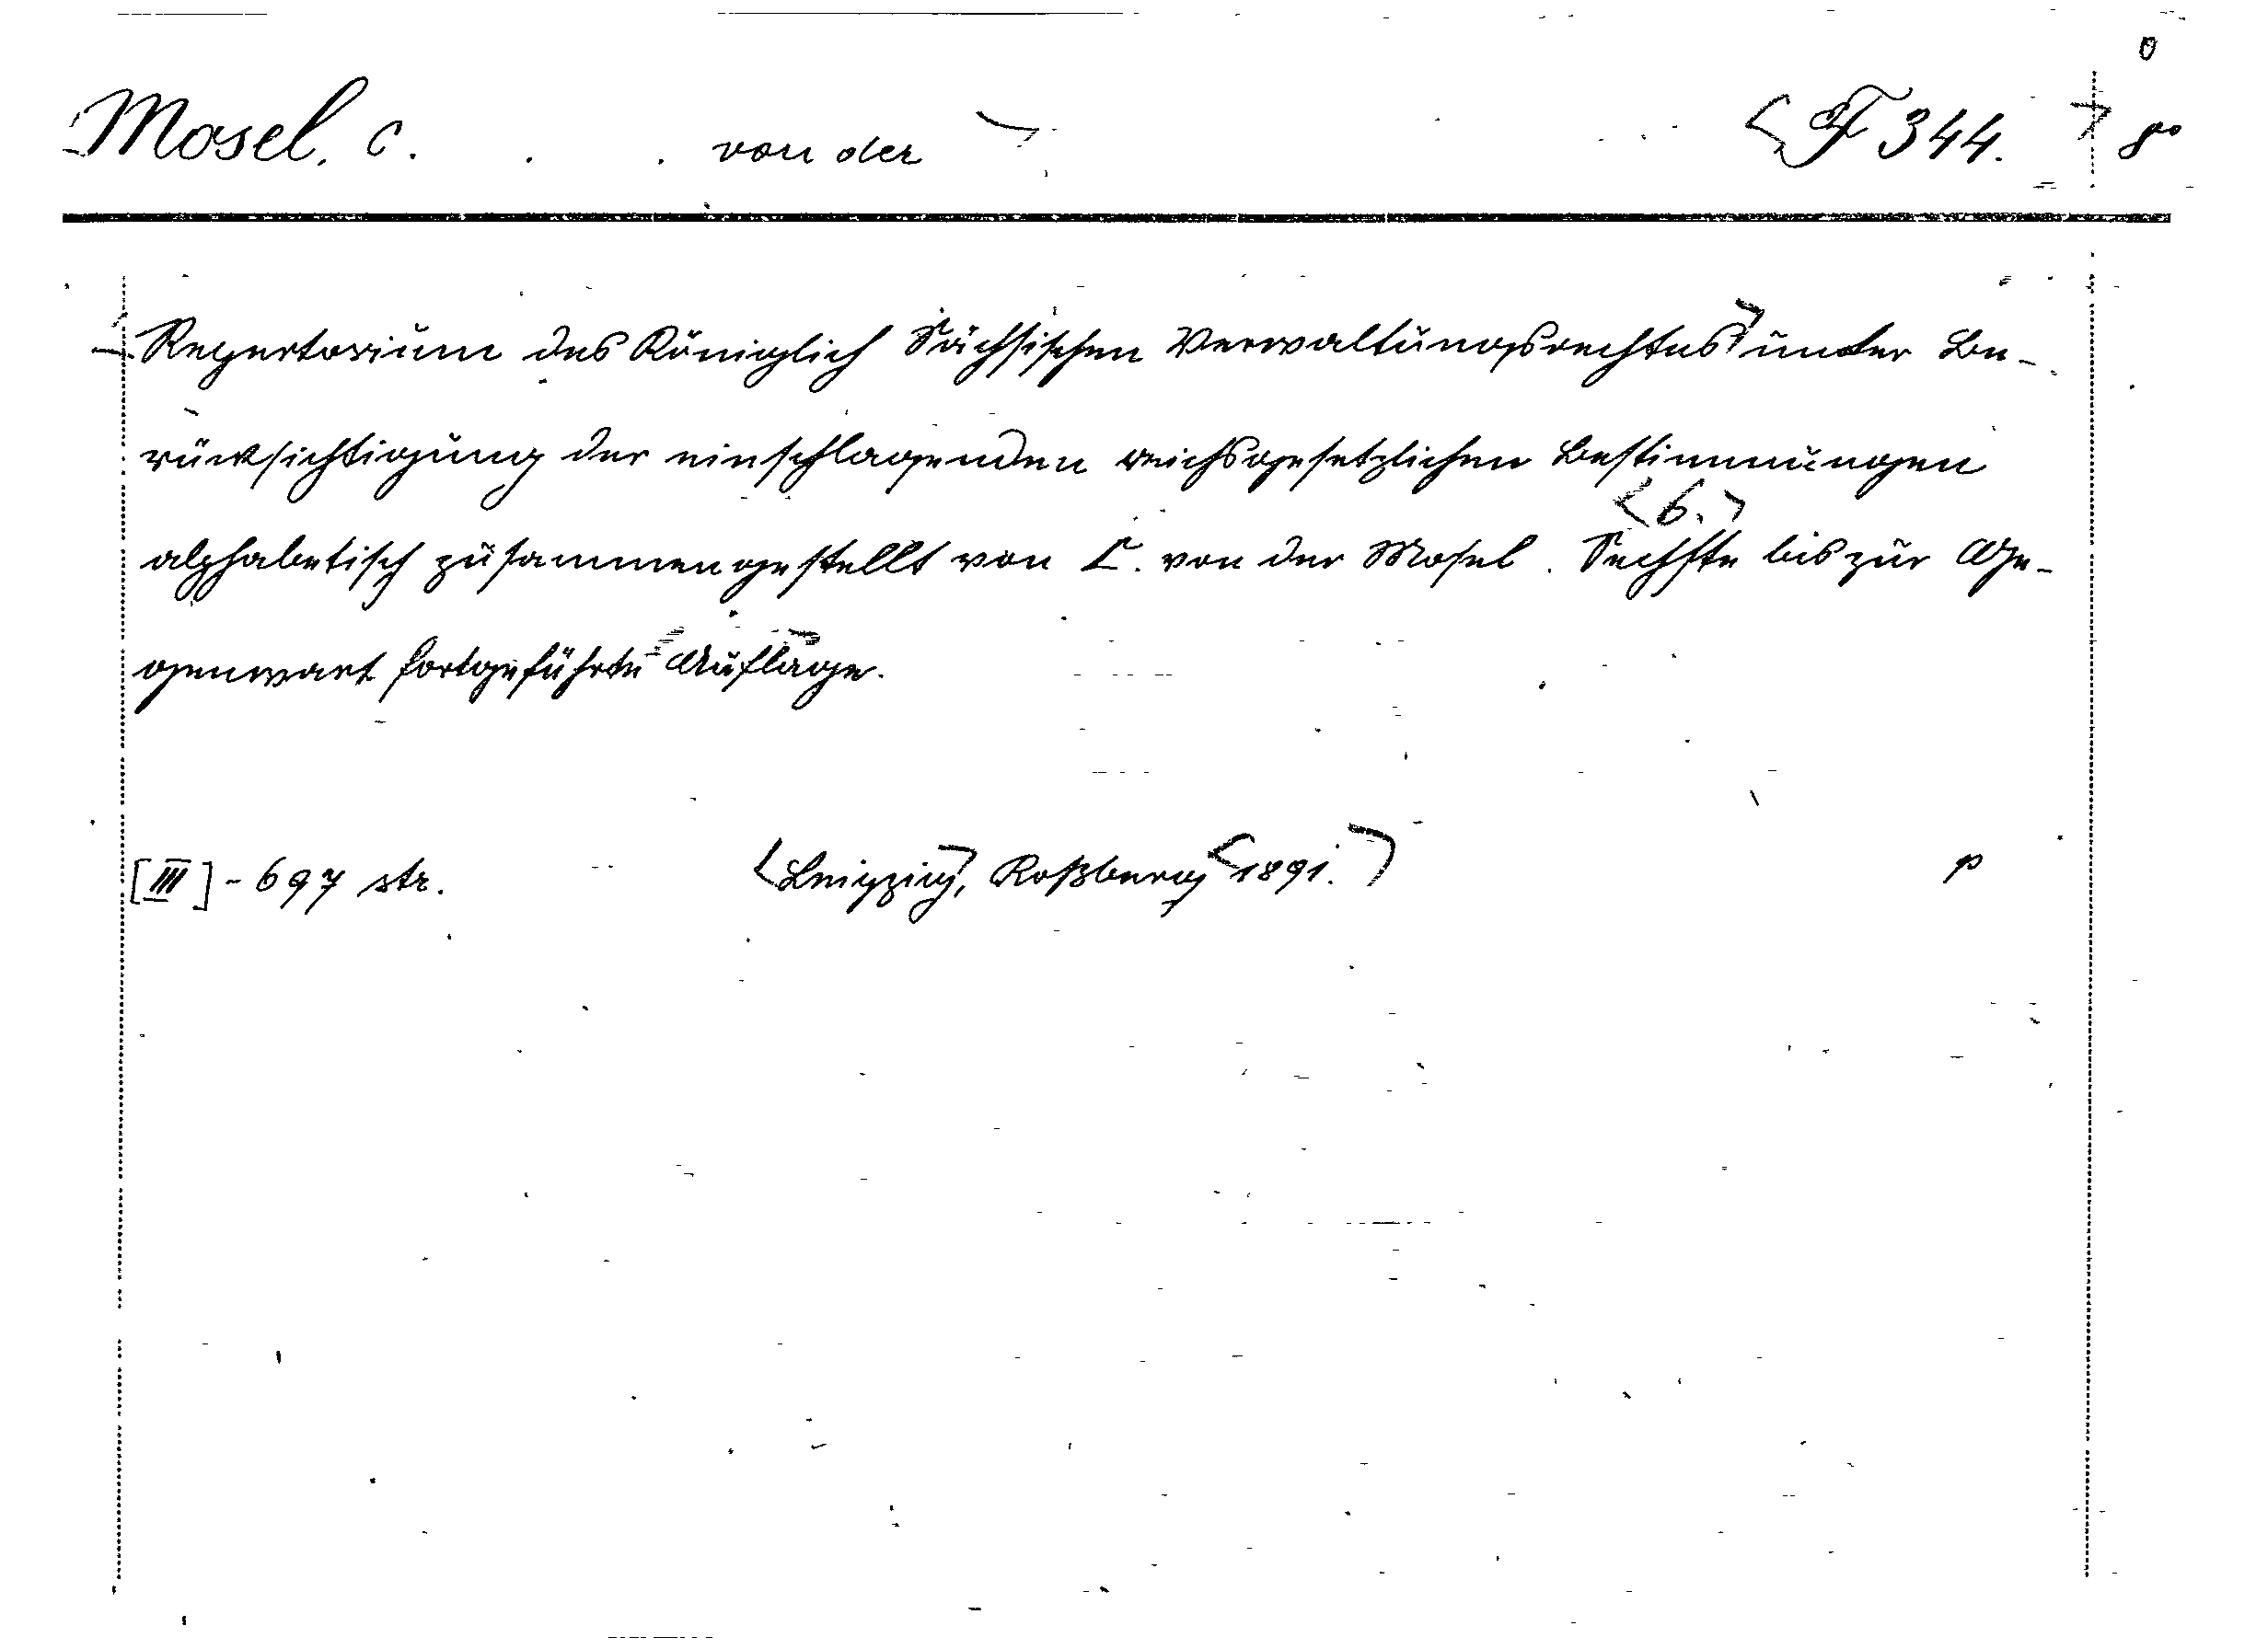 0
Mosel, C. . . von der <F 344.> 8°
Repertorium des Königlich Sächsischen Verwaltungsrechtes> unter Be-
rücksichtigung der einschlagenden reichsgesetzlichen Bestimmungen
<6.>
alphabetisch zusammengestellt von C. von der Mosel. Sechste bis zur Ge-
genwart fortgeführte Auflage.
[III] - 697 str. <Leipzig>, Roßberg <1891.> p